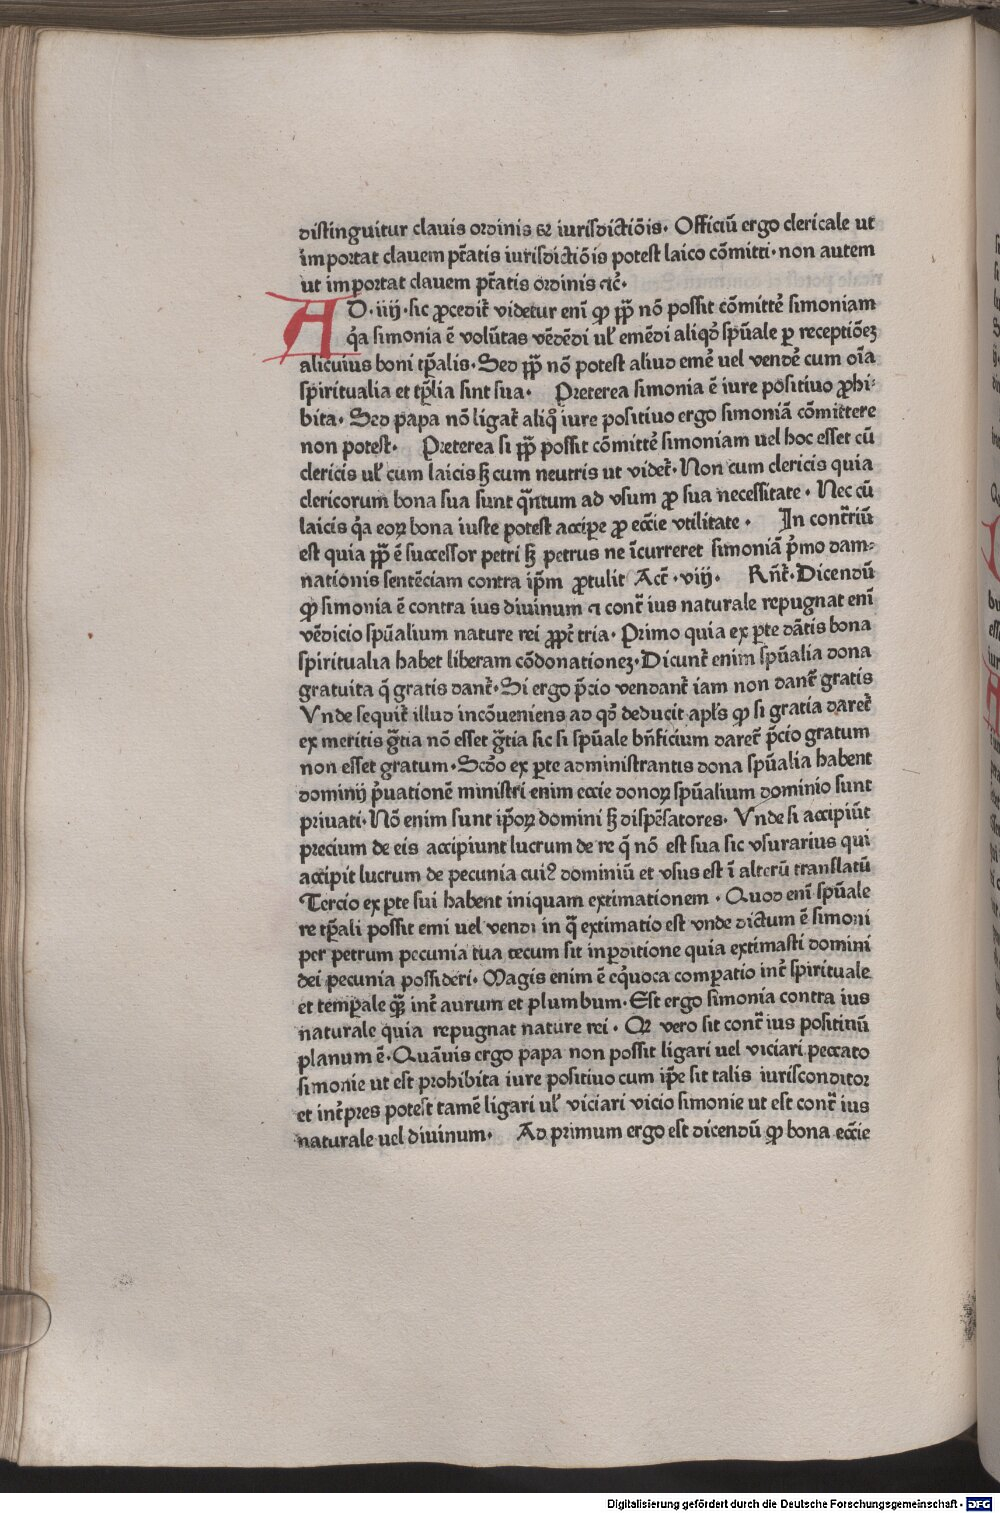 distinguitur clauis ordinis & iurisdictiōis. Officiū ergo clericale ut
importat clauem ptātis iurisdictiōis potest laico cōmitti. non autem
ut importat clauem ptātis ordinis ⁊c̄.
AD. iiij. sic ꝓcedit᷑ videtur eni̅ ꝙ pp̄ nō possit cōmitte᷑ simoniam
q̄a simonia ē volūtas vēdēdi ul̄ emēdi aliqō spūale ꝑ receptiōeꝫ
alicuius boni tꝑalis. Sed pp̄ nō potest aliud eme᷑ uel vende᷑ cum oīa
spiritualia et tꝑlia sint sua. Preterea simonia ē iure positiuo ꝓhi-
bita. Sed papa nō ligat᷑ aliq̊ iure positiuo ergo simoniā cōmittere
non potest. Preterea si pp̄ possit cōmitte᷑ simoniam uel hoc esset cū
clericis ul̄ cum laicis sꝫ cum neutris ut videt᷑. Non cum clericis quia
clericorum bona sua sunt q̄ntum ad vsum ꝓ sua necessitate. Nec cū
laicis q̄a eoꝝ bona iuste potest accipe ꝓ eccīe vtilitate. In contr̄iū
est quia pp̄ ē successor petri sꝫ petrus ne īcurreret simoniā p̄mo dam-
nationis sentēciam contra ip̄m ꝓtulit Act̄. viij. Rn̄t᷑. Dicendū
ꝙ simonia ē contra ius diuinum ⁊ cont᷑ ius naturale repugnat eni̅
vēdicio spūalium nature rei ꝓpt᷑ tria. Primo quia ex ꝑte dātis bona
spiritualia habet liberam cōdonationeꝫ. Dicunt᷑ enim spūalia dona
gratuita q̄ gratis dant᷑. Si ergo p̄cio vendant᷑ iam non dant᷑ gratis
Vnde sequit᷑ illud incōueniens ad qō deducit apl̄s ꝙ si gratia daret᷑
ex meritis gr̄tia nō esset gr̄tia sic si spūale bn̄ficium daret᷑ p̄cio gratum
non esset gratum. Scdo ex ꝑte administrantis dona spūalia habent
dominij p̄uationē ministri enim eccīe donoꝝ spūalium dominio sunt
priuati. Nō enim sunt ip̄oꝝ domini sꝫ dispēsatores. Vnde si accipiūt
precium de eis accipiunt lucrum de re q̄ nō est sua sic vsurarius qui
accipit lucrum de pecunia cui⁹ dominiū et vsus est ī alterū translatū
Tercio ex ꝑte sui habent iniquam extimationem. Quod eni̅ spūale
re tꝑali possit emi uel vendi in q̄ extimatio est vnde dictum ē simoni
per petrum pecunia tua tecum sit in ꝑditione quia extimasti domini
dei pecunia possideri. Magis enim ē eq̄uoca comꝑatio int᷑ spirituale
et temꝑale q̄ꝫ int᷑ aurum et plumbum. Est ergo simonia contra ius
naturale quia repugnat nature rei. Qꝫ vero sit cont᷑ ius positiuū
planum ē. Quāuis ergo papa non possit ligari uel viciari peccato
simonie ut est prohibita iure positiuo cum ip̄e sit talis iurisconditor
et int᷑pres potest tamē ligari ul̄ viciari vicio simonie ut est cont᷑ ius
naturale uel diuinum. Ad primum ergo est dicendū ꝙ bona eccīe
Digitalisierung gefördert durch die Deutsche Forschungsgemeinschaft - DFG